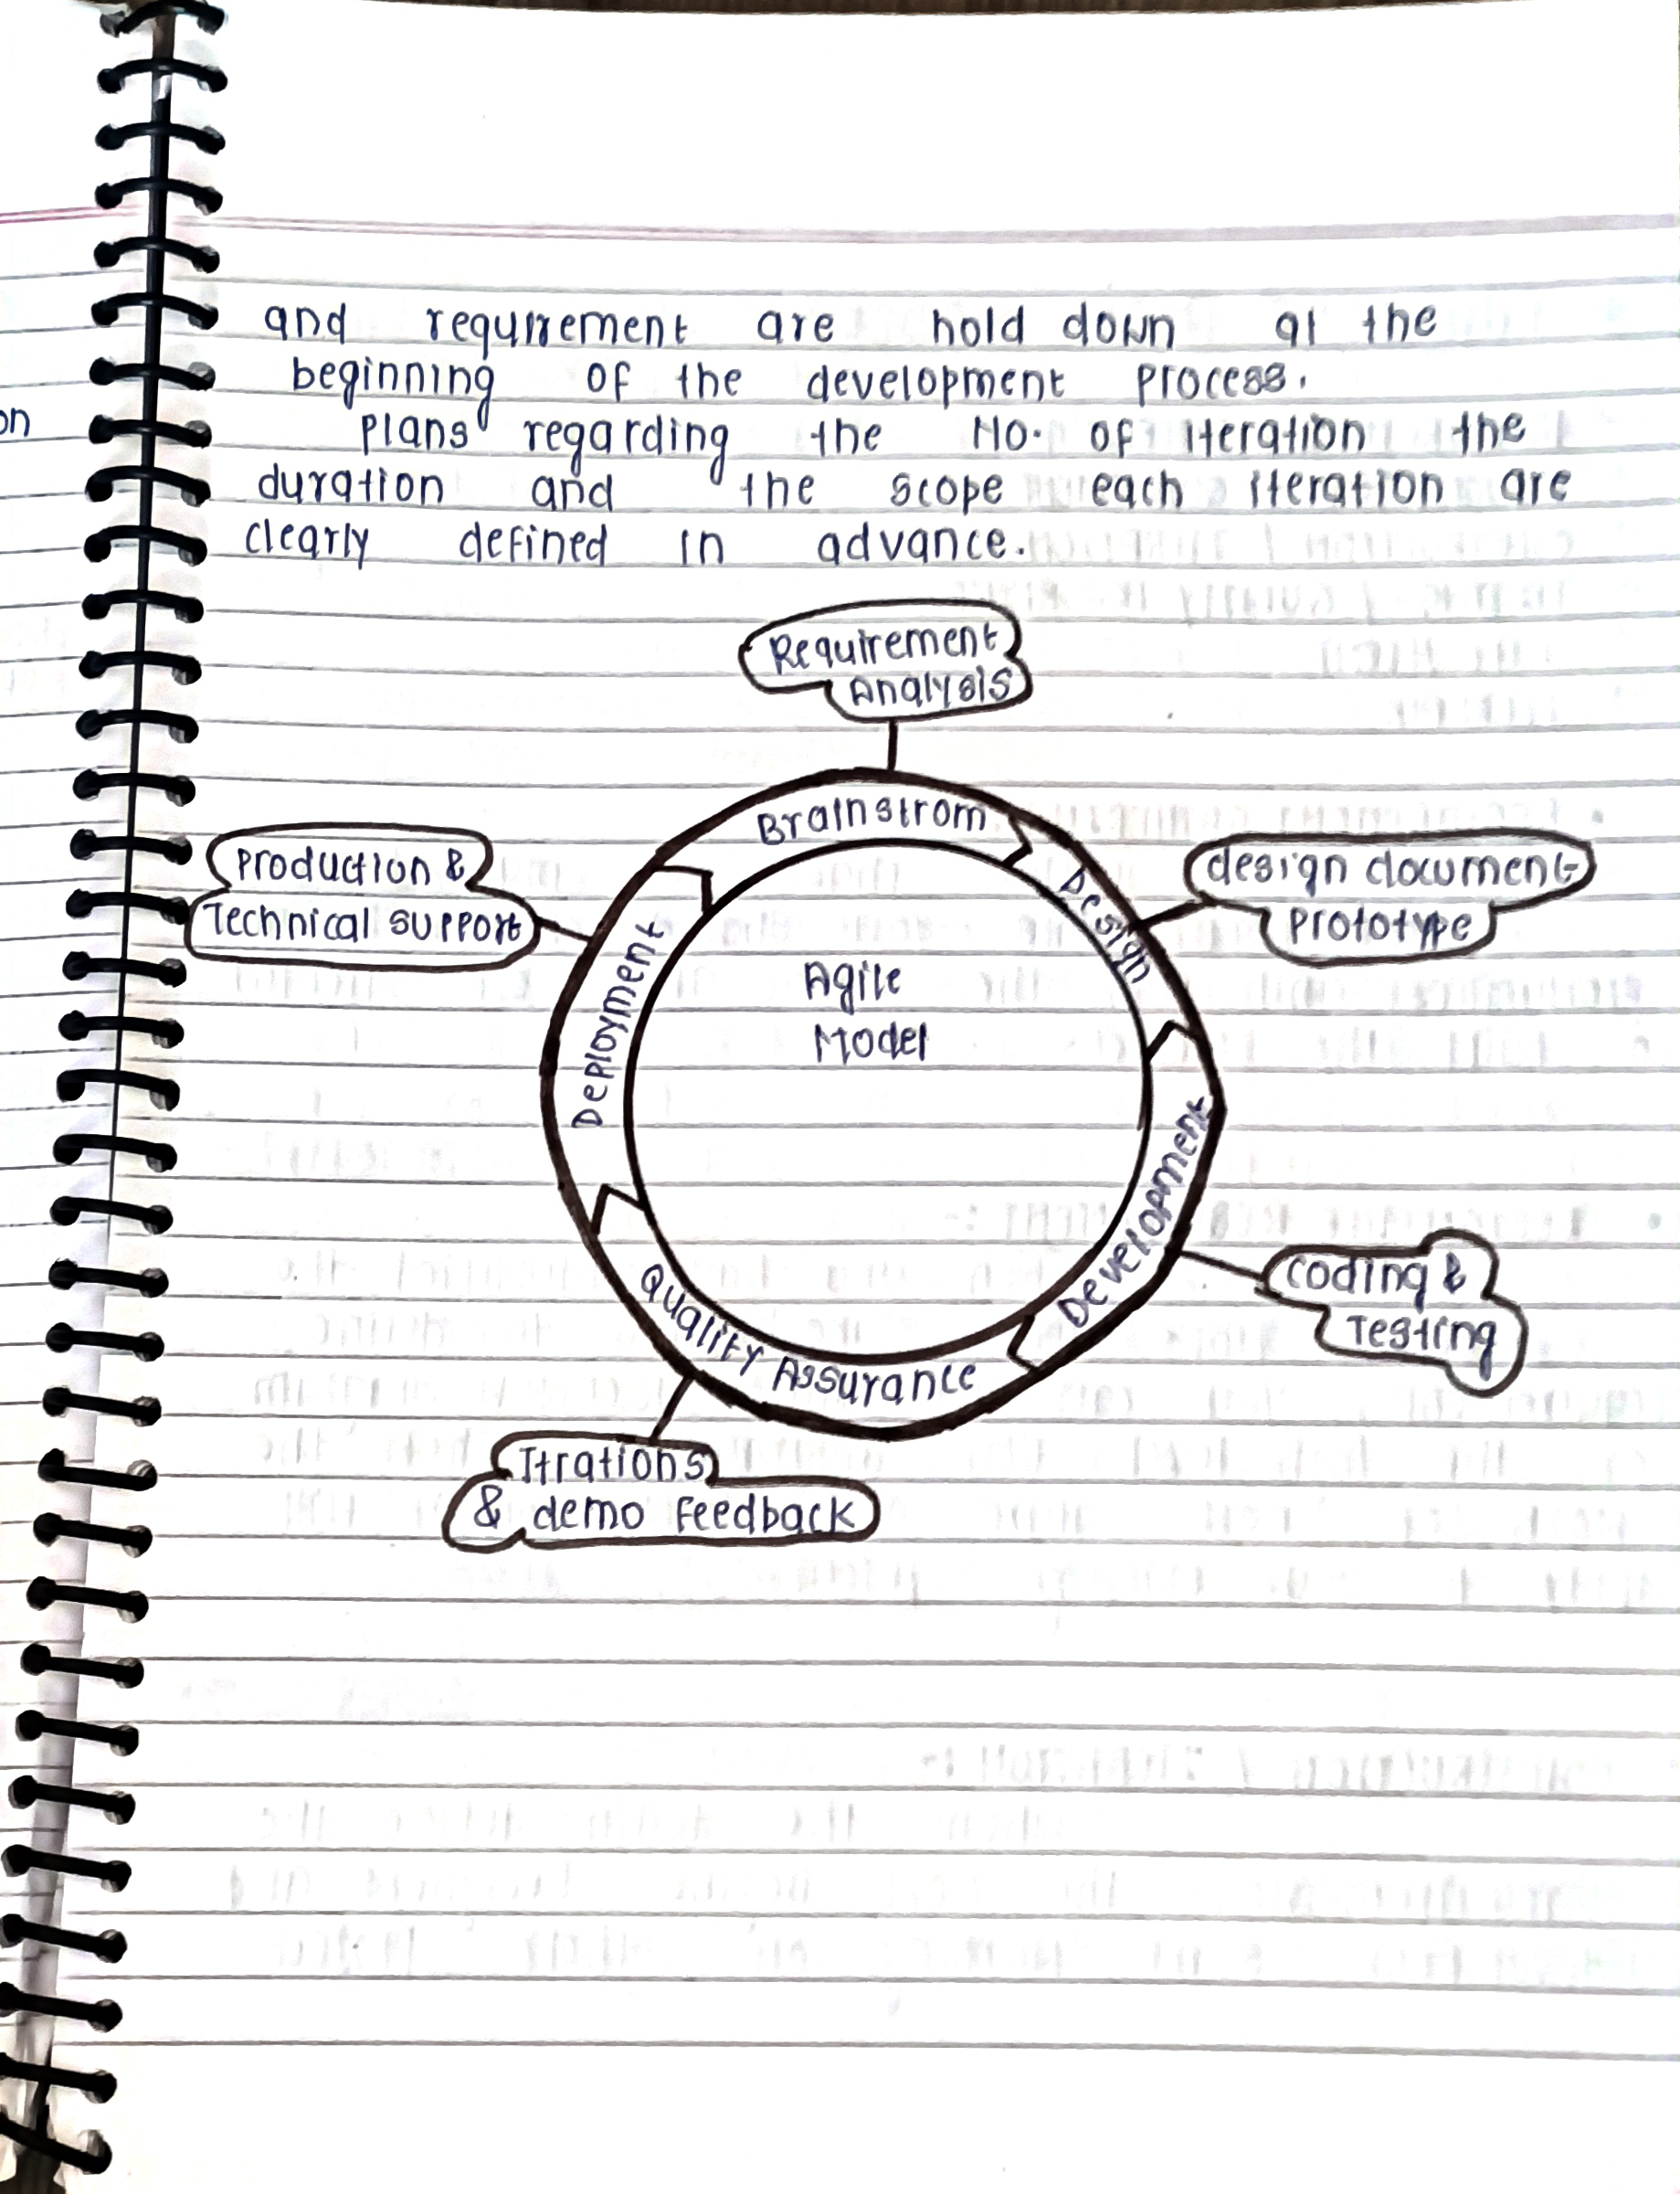 and requirement are hold down at the
beginning of the development process.
plans regarding the No. of iteration the
duration and the scope each iteration are
clearly defined in advance.
on
Requirement
Analysis
Brainstrom
Production &
Technical support
design document
prototype
Design
Deployment
Agile
Model
Development
coding &
Testing
Quality Assurance
Itrations
& demo Feedback